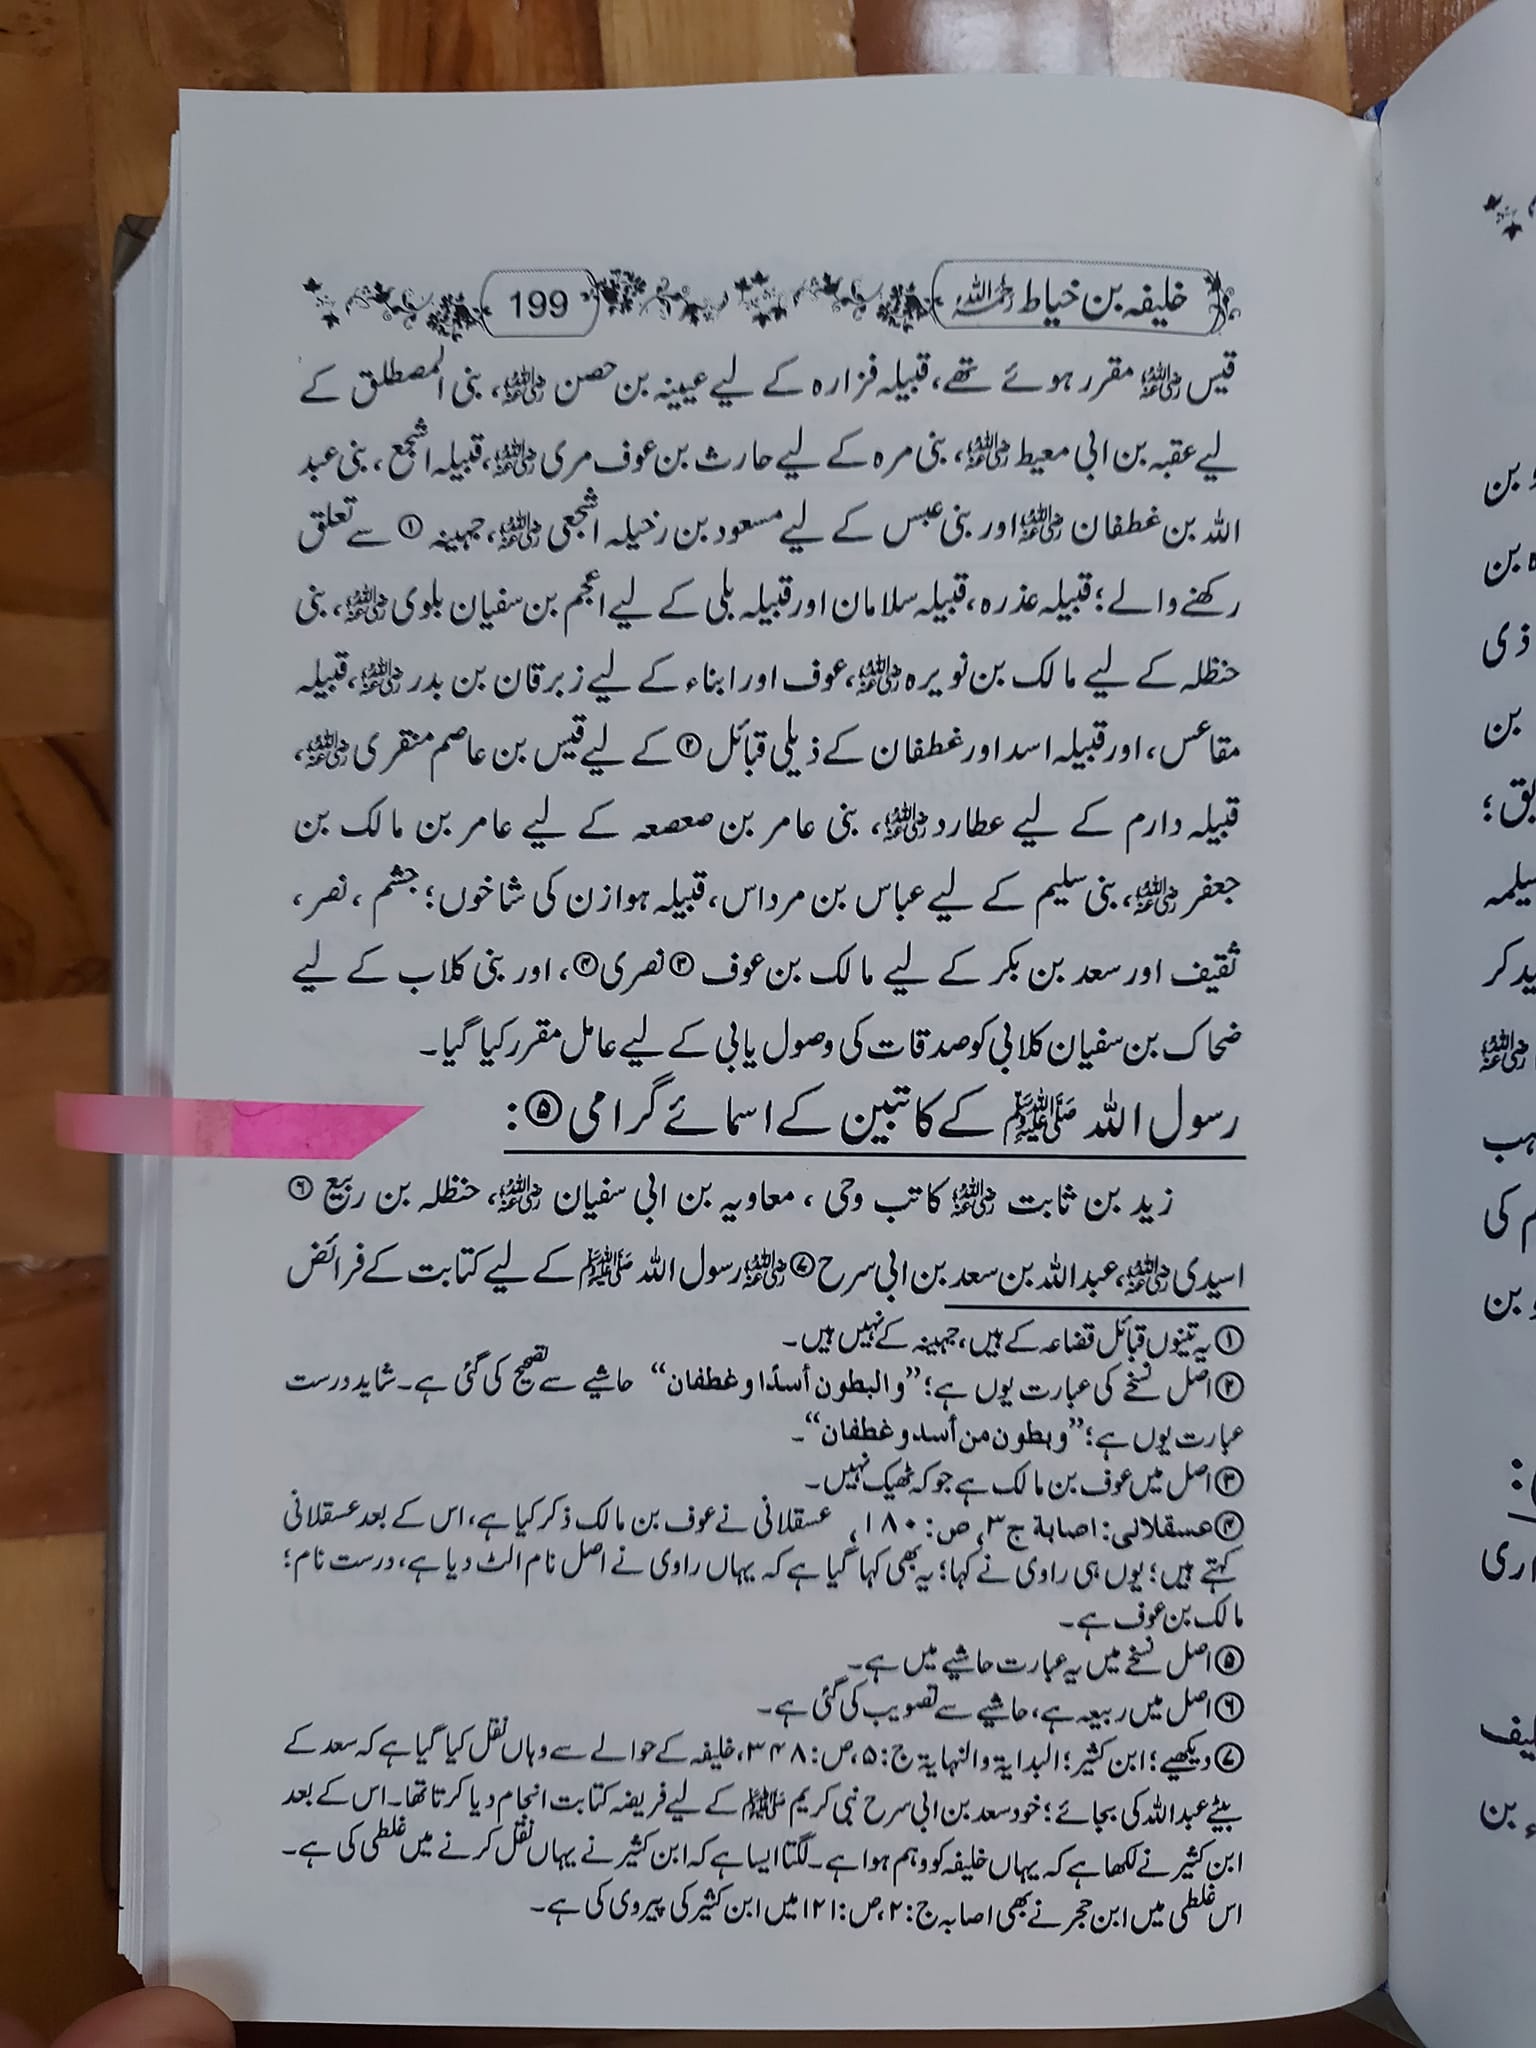 خلیفہ بن خیاط رحمہ اللہ
199
قیس رضی اللہ عنہ مقرر ہوئے تھے، قبیلہ فزارہ کے لیے عیینہ بن حصن رضی اللہ عنہ، بنی المصطلق کے
لیے عقبہ بن ابی معیط رضی اللہ عنہ، بنی مرہ کے لیے حارث بن عوف مری رضی اللہ عنہ، قبیلہ اشجع، بنی عبد
اللہ بن غطفان رضی اللہ عنہ اور بنی عبس کے لیے مسعود بن رخیلہ اشجعی رضی اللہ عنہ، جہینہ ① سے تعلق
رکھنے والے؛ قبیلہ عذرہ، قبیلہ سلامان اور قبیلہ بلی کے لیے اعجم بن سفیان بلوی رضی اللہ عنہ، بنی
حنظلہ کے لیے مالک بن نویرہ رضی اللہ عنہ، عوف اور ابناء کے لیے زبرقان بن بدر رضی اللہ عنہ، قبیلہ
مقاعس، اور قبیلہ اسد اور غطفان کے ذیلی قبائل ② کے لیے قیس بن عاصم منقری رضی اللہ عنہ،
قبیلہ دارم کے لیے عطارد رضی اللہ عنہ، بنی عامر بن صعصعہ کے لیے عامر بن مالک بن
جعفر رضی اللہ عنہ، بنی سلیم کے لیے عباس بن مرداس، قبیلہ ہوازن کی شاخوں؛ جشم، نصر،
ثقیف اور سعد بن بکر کے لیے مالک بن عوف ③ نصری ④، اور بنی کلاب کے لیے
ضحاک بن سفیان کلابی کو صدقات کی وصول یابی کے لیے عامل مقرر کیا گیا۔
رسول اللہ ﷺ کے کاتبین کے اسمائے گرامی ⑤:
زید بن ثابت رضی اللہ عنہ کاتب وحی، معاویہ بن ابی سفیان رضی اللہ عنہ، حنظلہ بن ربیع ⑥
اسیدی رضی اللہ عنہ، عبداللہ بن سعد بن ابی سرح ⑦ رضی اللہ عنہ رسول اللہ ﷺ کے لیے کتابت کے فرائض
① یہ تینوں قبائل قضاعہ کے ہیں، جہینہ کے نہیں ہیں۔
② اصل نسخے کی عبارت یوں ہے؛ ”والبطون أسدًا وغطفان“ حاشیے سے تصحیح کی گئی ہے۔ شاید درست
عبارت یوں ہے؛ ”وبطون من أسد وغطفان“۔
③ اصل میں عوف بن مالک ہے جو کہ ٹھیک نہیں۔
④ عسقلانی: اصابة ج۳، ص: ۱۸۰، عسقلانی نے عوف بن مالک ذکر کیا ہے، اس کے بعد عسقلانی
کہتے ہیں؛ یوں ہی راوی نے کہا؛ یہ بھی کہا گیا ہے کہ یہاں راوی نے اصل نام الٹ دیا ہے، درست نام؛
مالک بن عوف ہے۔
⑤ اصل نسخے میں یہ عبارت حاشیے میں ہے۔
⑥ اصل میں ربیعہ ہے، حاشیے سے تصویب کی گئی ہے۔
⑦ دیکھیے؛ ابن کثیر؛ البدایة والنہایة ج: ۵، ص: ۳۴۸، خلیفہ کے حوالے سے وہاں نقل کیا گیا ہے کہ سعد کے
بیٹے عبداللہ کی بجائے؛ خود سعد بن ابی سرح نبی کریم ﷺ کے لیے فریضہ کتابت انجام دیا کرتا تھا۔ اس کے بعد
ابن کثیر نے لکھا ہے کہ یہاں خلیفہ کو وہم ہوا ہے۔ لگتا ایسا ہے کہ ابن کثیر نے یہاں نقل کرنے میں غلطی کی ہے۔
اس غلطی میں ابن حجر نے بھی اصابہ ج: ۲، ص: ۱۲۱ میں ابن کثیر کی پیروی کی ہے۔